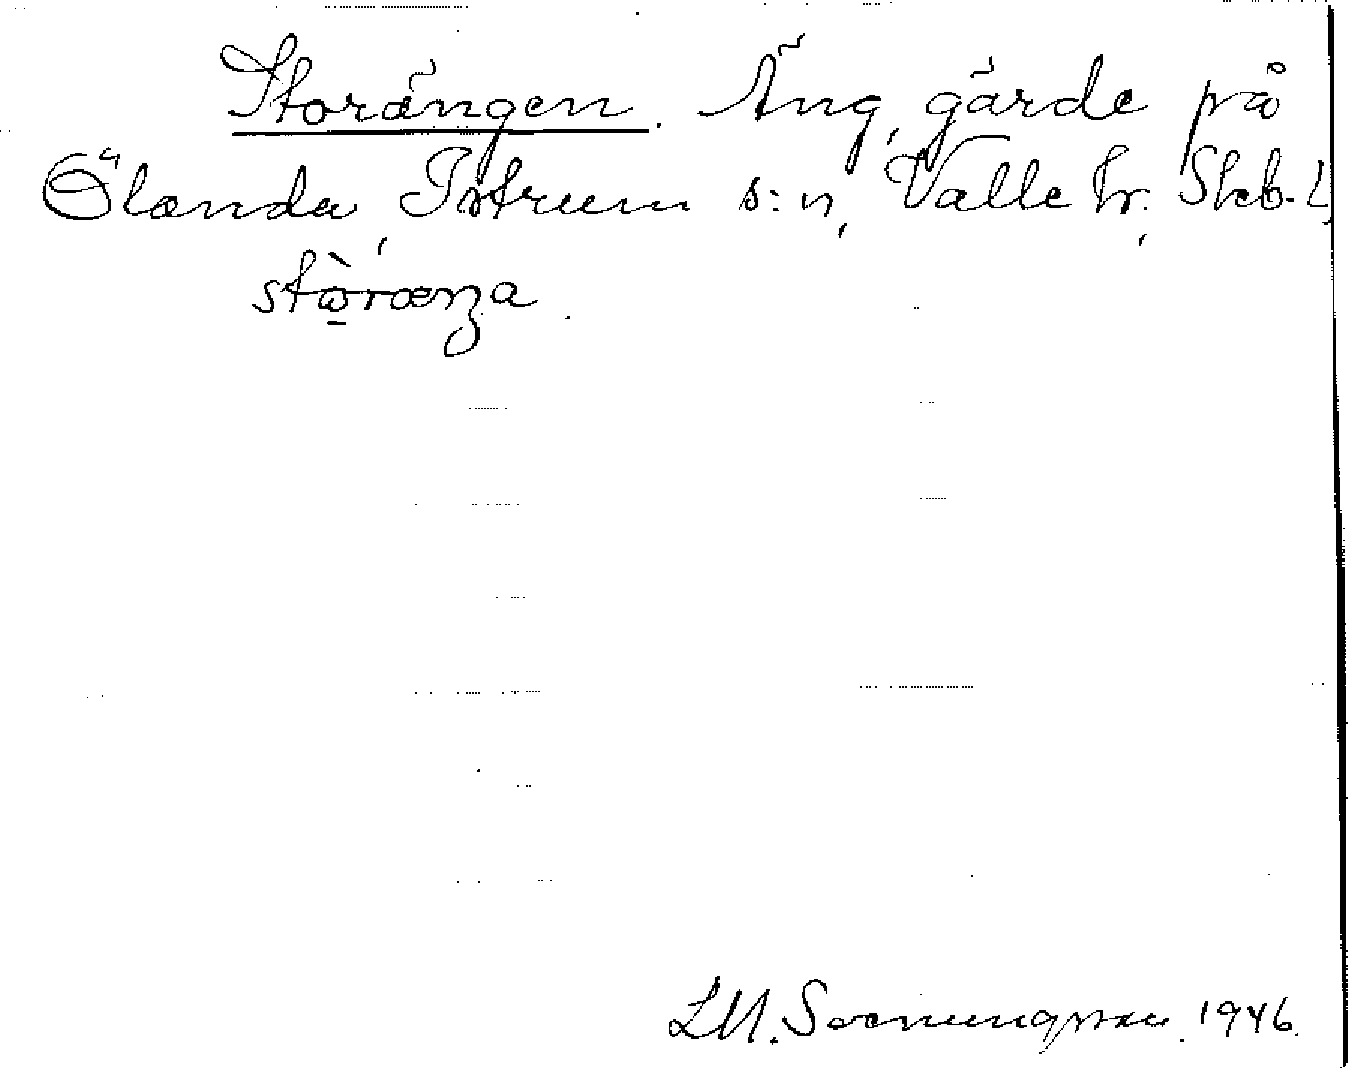 Storängen. Äng, gärde på
Ölanda, Istrum s:n, Valle hr., Skb. L
stòrænga.
L.M. Svenungsson 1946.